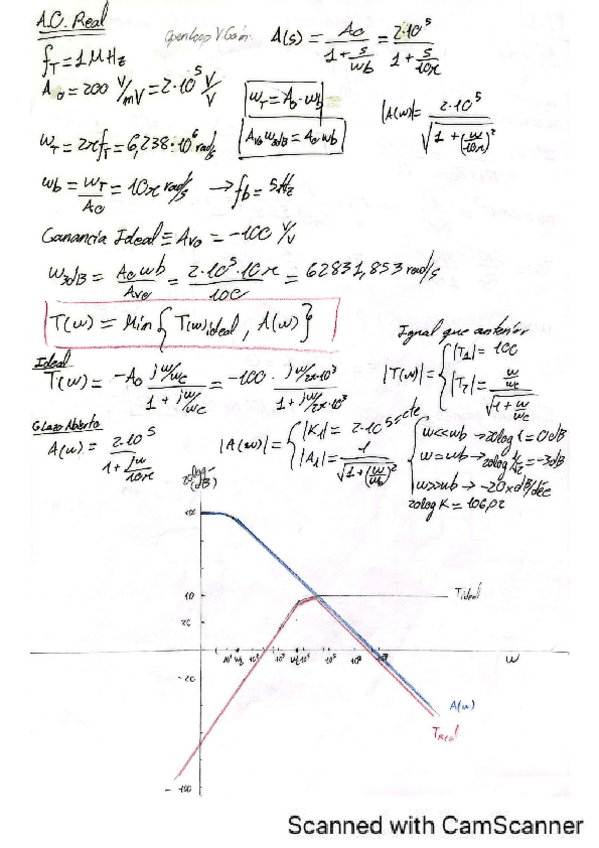 A.O. Real
Openloop V Gain
A(s) = Ao / (1 + s/wb) = 2·10^5 / (1 + s/10π)
f_T = 1 MHz
A_o = 200 V/mV = 2·10^5 V/V
w_T = A_o · w_b
|A(w)| = 2·10^5 / √(1 + (w/10π)^2)
w_T = 2πf_T = 6,238·10^6 rad/s
A_vo w_3dB = A_o wb
wb = w_T / A_o = 10π rad/s → f_b = 5Hz
Ganancia Ideal ≡ A_vo = -100 V/V
w_3dB = A_o wb / A_vo = 2·10^5·10π / 100 = 62831,853 rad/s
T(w) = Min { T(w)ideal, A(w) }
Igual que anterior
Ideal
T(w) = -A_o (jw/wc) / (1 + jw/wc) = -100 · (jw/2π·10^3) / (1 + jw/2π·10^3)
|T(w)| = { |T_1| = 100
|T_2| = (w/wc) / √(1 + w/wc)
Glazo Abierto
A(w) = 2·10^5 / (1 + jw/10π)
|A(w)| = { |K_1| = 2·10^5 = cte
|A_1| = 1 / √(1 + (w/wb)^2)
{ w<<wb → 20log 1 = 0 dB
w = wb → 20log 1/√2 = -3dB
w>>wb → -20 x dB/déc
20log K = 106,02
20log
(dB)
Tideal
20
w
-20
A(w)
T_Real
-100
Scanned with CamScanner